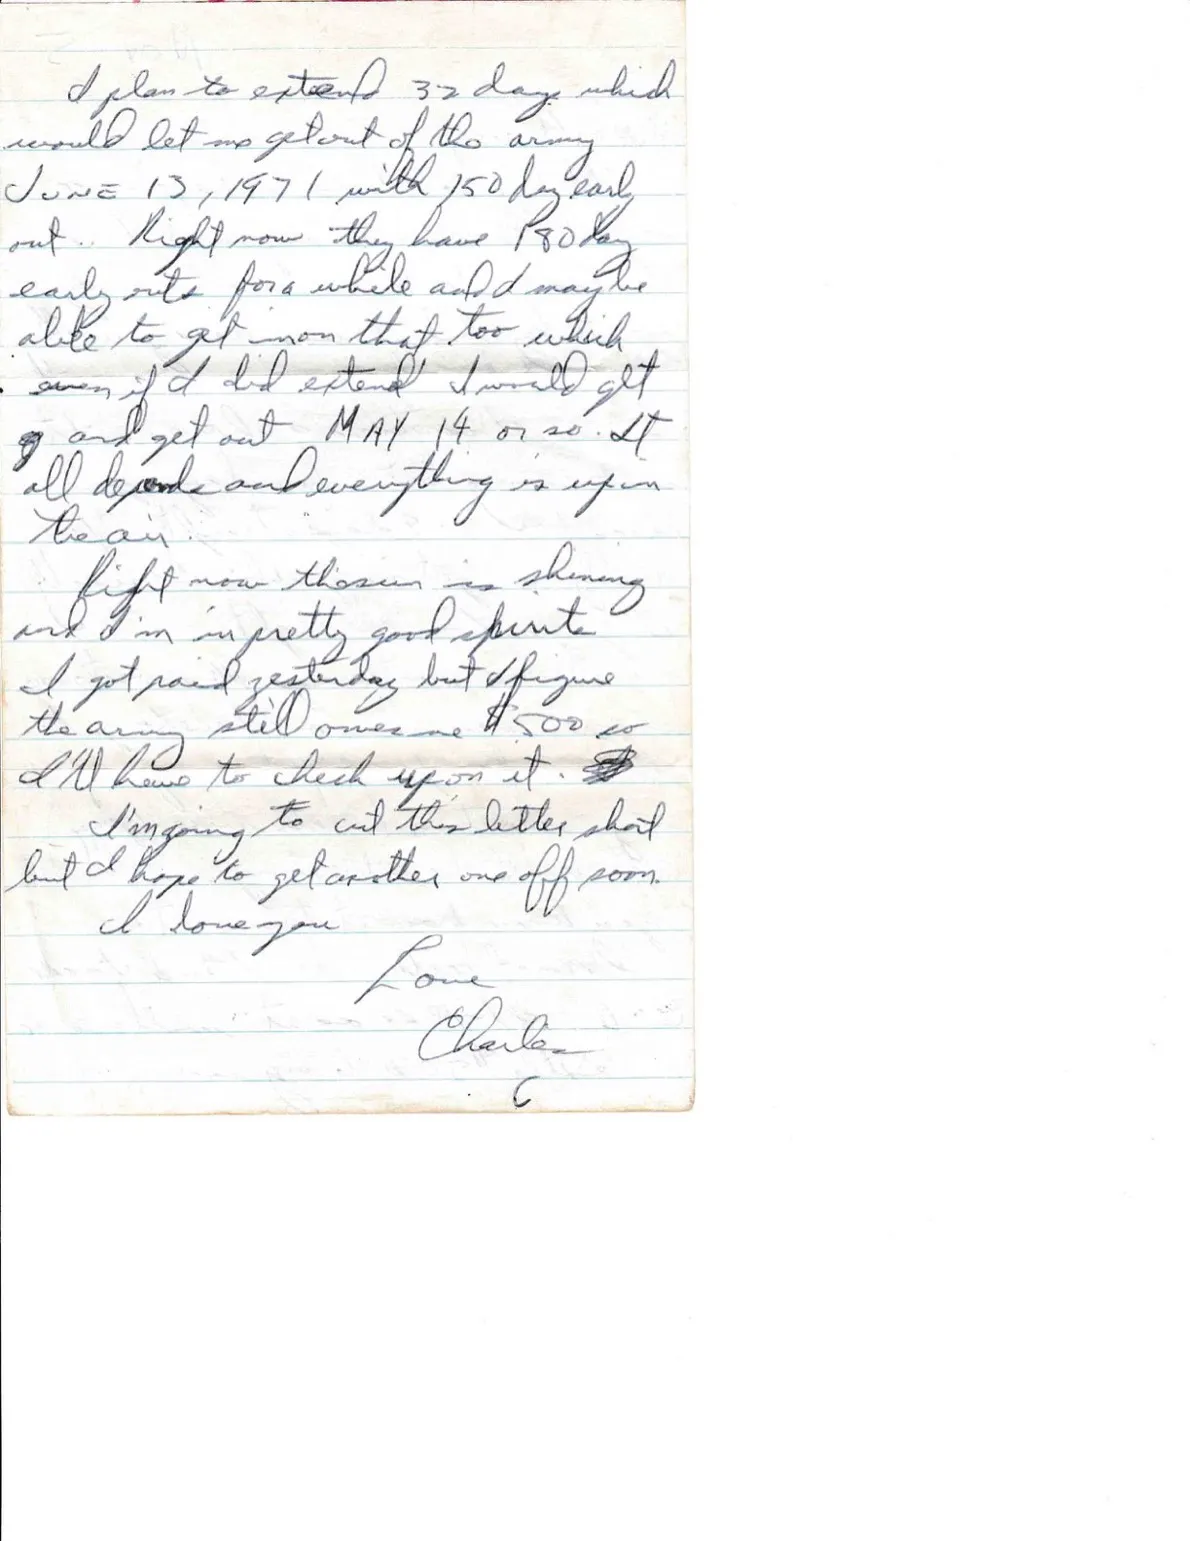 I plan to extend 32 days which
would let me get out of the army
JUNE 13, 1971 with 150 day early
out.. Right now they have 180 day
early outs for a while and I maybe
able to get in on that too which
even if I did extend I would get
and get out MAY 14 or so. It
all depends and everything is up in
the air.
Right now the sun is shining
and I'm in pretty good spirits
I got paid yesterday but I figure
the army still owes me $500 so
I'll have to check up on it.
I'm going to cut this letter short
but I hope to get another one off soon.
I love you
Love
Charles